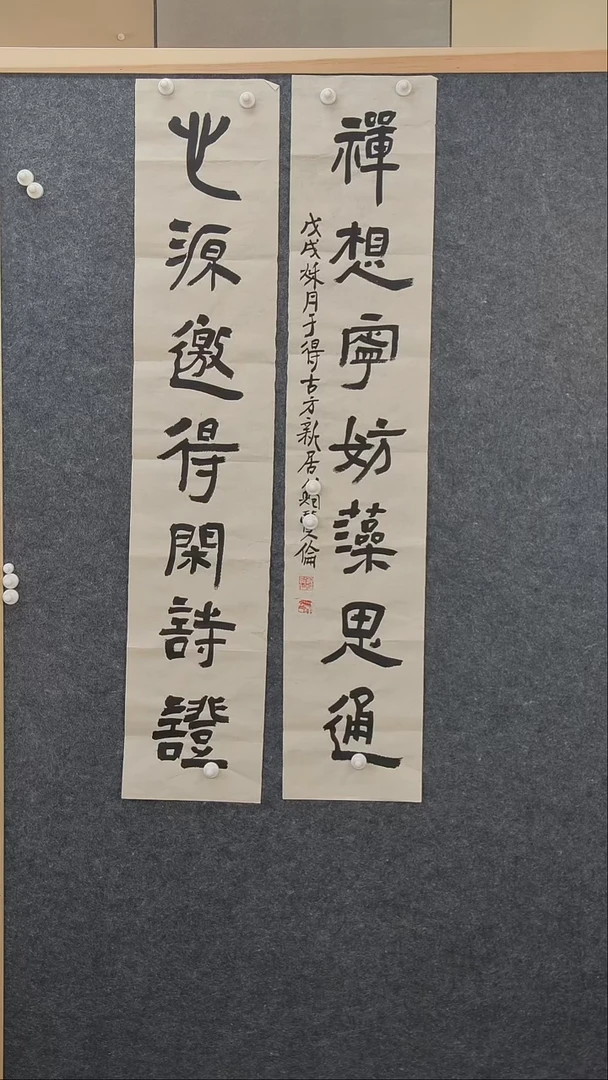 禪想寧妨藻思通
戊戌秋月于得古方新居 倫
心源邀得閑詩證